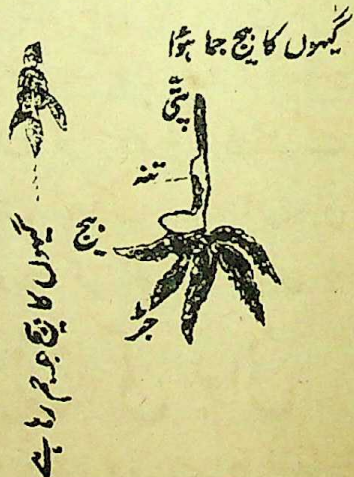 گیہوں کا بیج جما ہؤا
پتّی
تنہ
بیج
جڑ
گیہوں کا بیج جو جم رہا ہے